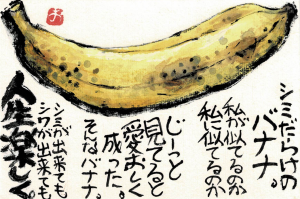 シミだらけの
バナナ。
私が似てるのか
私に似てるのか
じーっと
見てると
愛おしく
成った。
そなバナナ。
人生楽しく。
シミが出来ても
シワが出来ても